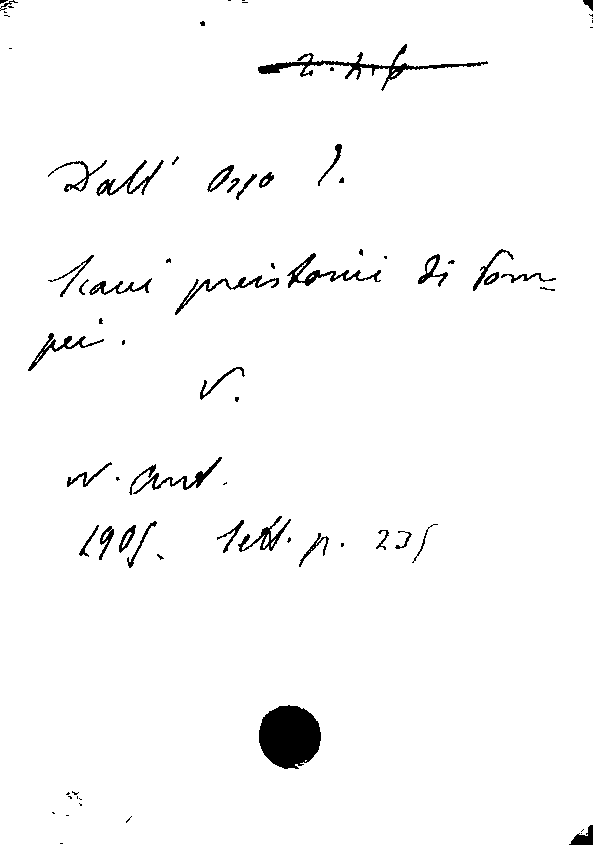 2.4.6
Dall' Osso I.
Scavi preistorici di Pom=
pei.
V.
N. Ant.
1905. Sett. p. 235